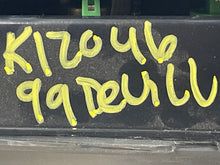 K120U6
99 DeVILL